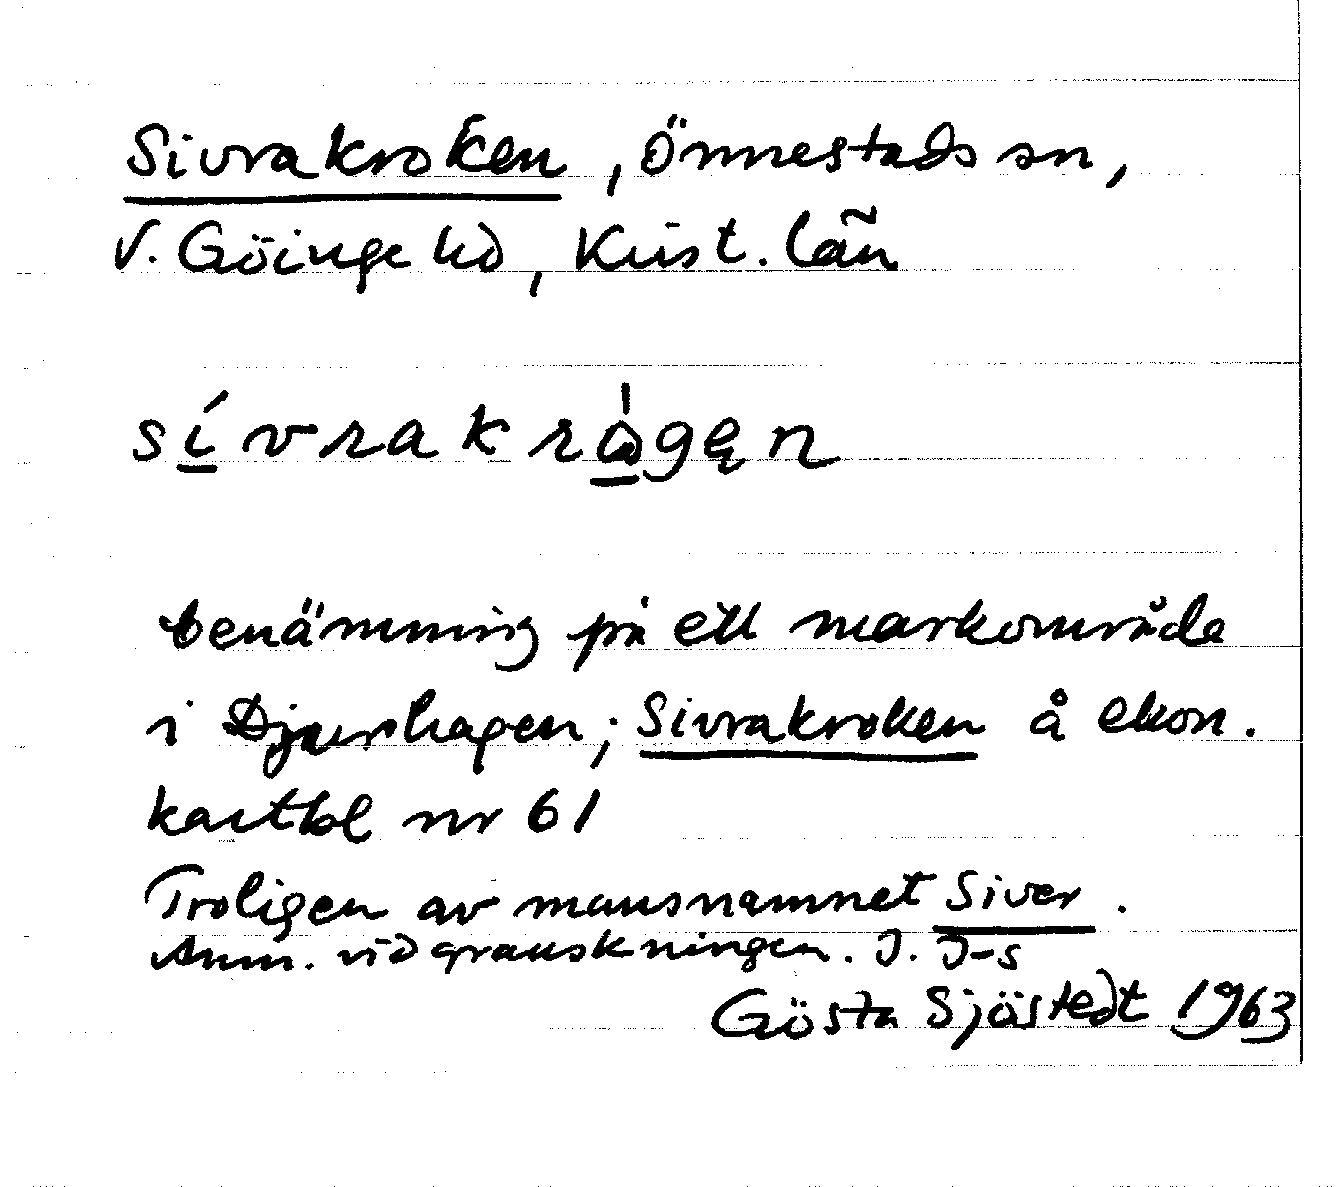 Sivrakroken, Önnestads sn,
V. Göinge hd, Krist. län
sívrakrågen
benämning på ett markområde
i Djurshagen; Sivrakroken å ekon.
kartbl nr 61
Troligen av mansnamnet Siver.
Anm. vid granskningen. I. I-s
Gösta Sjöstedt 1963